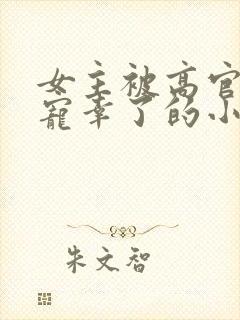 女主被高官
寵幸了的小
朱文智